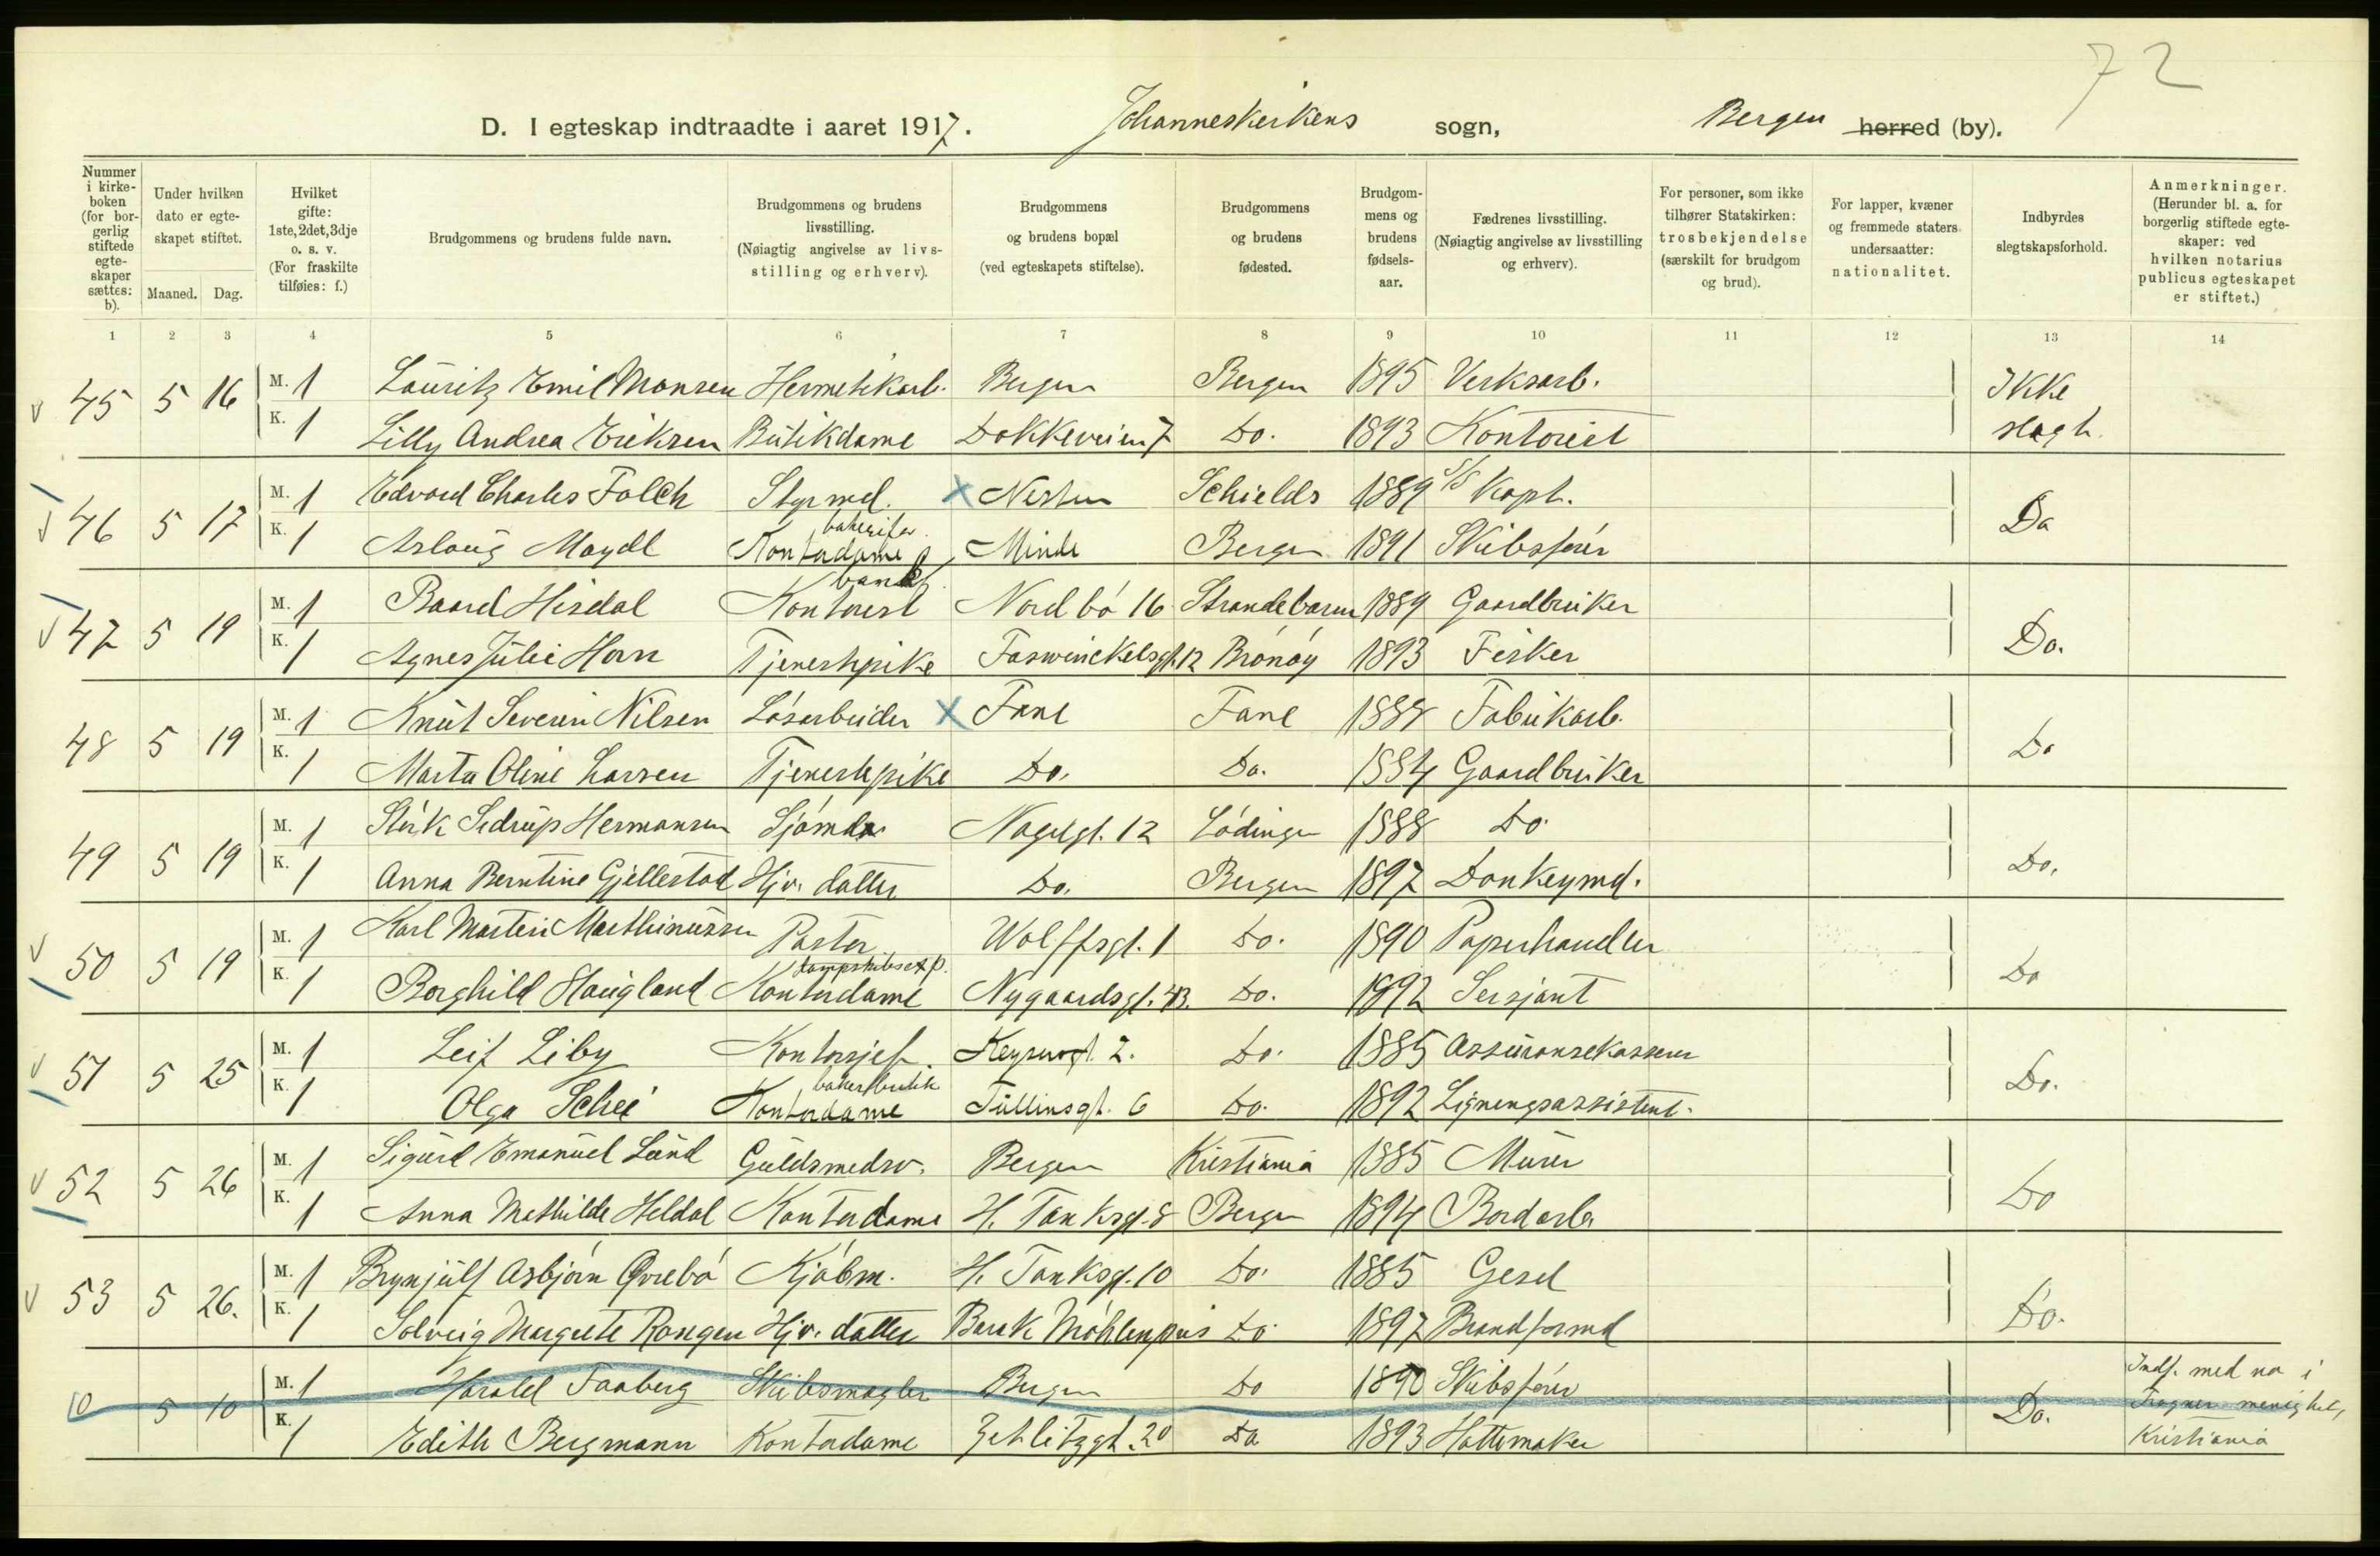 72
D. I egteskap indtraadte i aaret 1917. Johanneskirkens sogn, Bergen herred (by).
Nummer i kirke-boken (for bor-gerlig stiftede egte-skaper sættes: b).
Under hvilken dato er egte-skapet stiftet.
Maaned. Dag.
Hvilket gifte: 1ste, 2det, 3dje o. s. v. (For fraskilte tilføies: f.)
Brudgommens og brudens fulde navn.
Brudgommens og brudens livsstilling. (Nøiagtig angivelse av livs-stilling og erhverv).
Brudgommens og brudens bopæl (ved egteskapets stiftelse).
Brudgommens og brudens fødested.
Brudgom-mens og brudens fødsels-aar.
Fædrenes livsstilling. (Nøiagtig angivelse av livsstilling og erhverv).
For personer, som ikke tilhører Statskirken: trosbekjendelse (særskilt for brudgom og brud).
For lapper, kvæner og fremmede staters undersaatter: nationalitet.
Indbyrdes slegtskapsforhold.
Anmerkninger. (Herunder bl. a. for borgerlig stiftede egte-skaper: ved hvilken notarius publicus egteskapet er stiftet.)
1 2 3 4 5 6 7 8 9 10 11 12 13 14
45 5 16 M. 1 Lauritz Emil Monsen Hermetikarb. Bergen Bergen 1895 Verksarb. Ikke
K. 1 Lilly Andrea Eriksen Butikdame Dokkeveien 7 Do. 1893 Kontorist slegt.
46 5 17 M. 1 Edvard Charles Falch Styrmd. x Nestun Schields 1889 S/S Kapt. Do
K. 1 Aslaug Maydl Kontordame Minde Bergen 1891 Skibsfører
47 5 19 M. 1 Baard Hisdal Kontorist bank Nordbø 16 Strandebarm 1889 Gaardbruker Do.
K. 1 Agnes Julie Horn Tjenestepike Foswinckelsgt. 12 Brønøy 1893 Fisker
48 5 19 M. 1 Knut Severin Nilsen Løsarbeider x Fane Fane 1888 Fabrikarb. Do
K. 1 Marta Oline Larsen Tjenestepike Do. Do. 1884 Gaardbruker
49 5 19 M. 1 Sedrup Hermansen Sjømd. Nagelgt. 12 Lødingen 1888 Do. Do.
K. 1 Anna Berntine Gjellestad Hjv. datter Do. Bergen 1897 Donkeymd.
50 5 19 M. 1 Karl Marteri Marthinussen Pastor Wolffsgt. 1 Do. 1890 Papirhandler Do
K. 1 Borghild Haugland Kontordame dampskibsexp. Nygaardsgt. 43. Do. 1892 Sersjant
51 5 25 M. 1 Leif Liby Kontorsjef Keysersgt. 2. Do. 1885 Assuransekasserer Do.
K. 1 Olga Schei Kontordame Tullinsgt. 6 Do. 1892 Ligningsassistent.
52 5 26 M. 1 Sigurd Emanuel Lund Guldsmedsv. Bergen Kristiania 1885 Murer Do
K. 1 Anna Mathilde Heldal Kontordame H. Tanksgt. 8 Bergen 1894 Bordarb.
53 5 26. M. 1 Brynjulf Asbjørn Øvrebø Kjøbm. H. Tanksgt. 10 Do. 1885 Gesel Do.
K. 1 Solveig Margrete Rongen Hjv. datter Barak Møhlenpris Do. 1897 Brandformd
10 5 10 M. 1 Harald Faaberg Skibsmægler Bergen Do 1890 Skibsfører Do. Indf. med no i
K. 1 Edith Bergmann Kontordame Gchlitzgt. 20 Do 1893 Hattemaker Frogner menighet, Kristiania